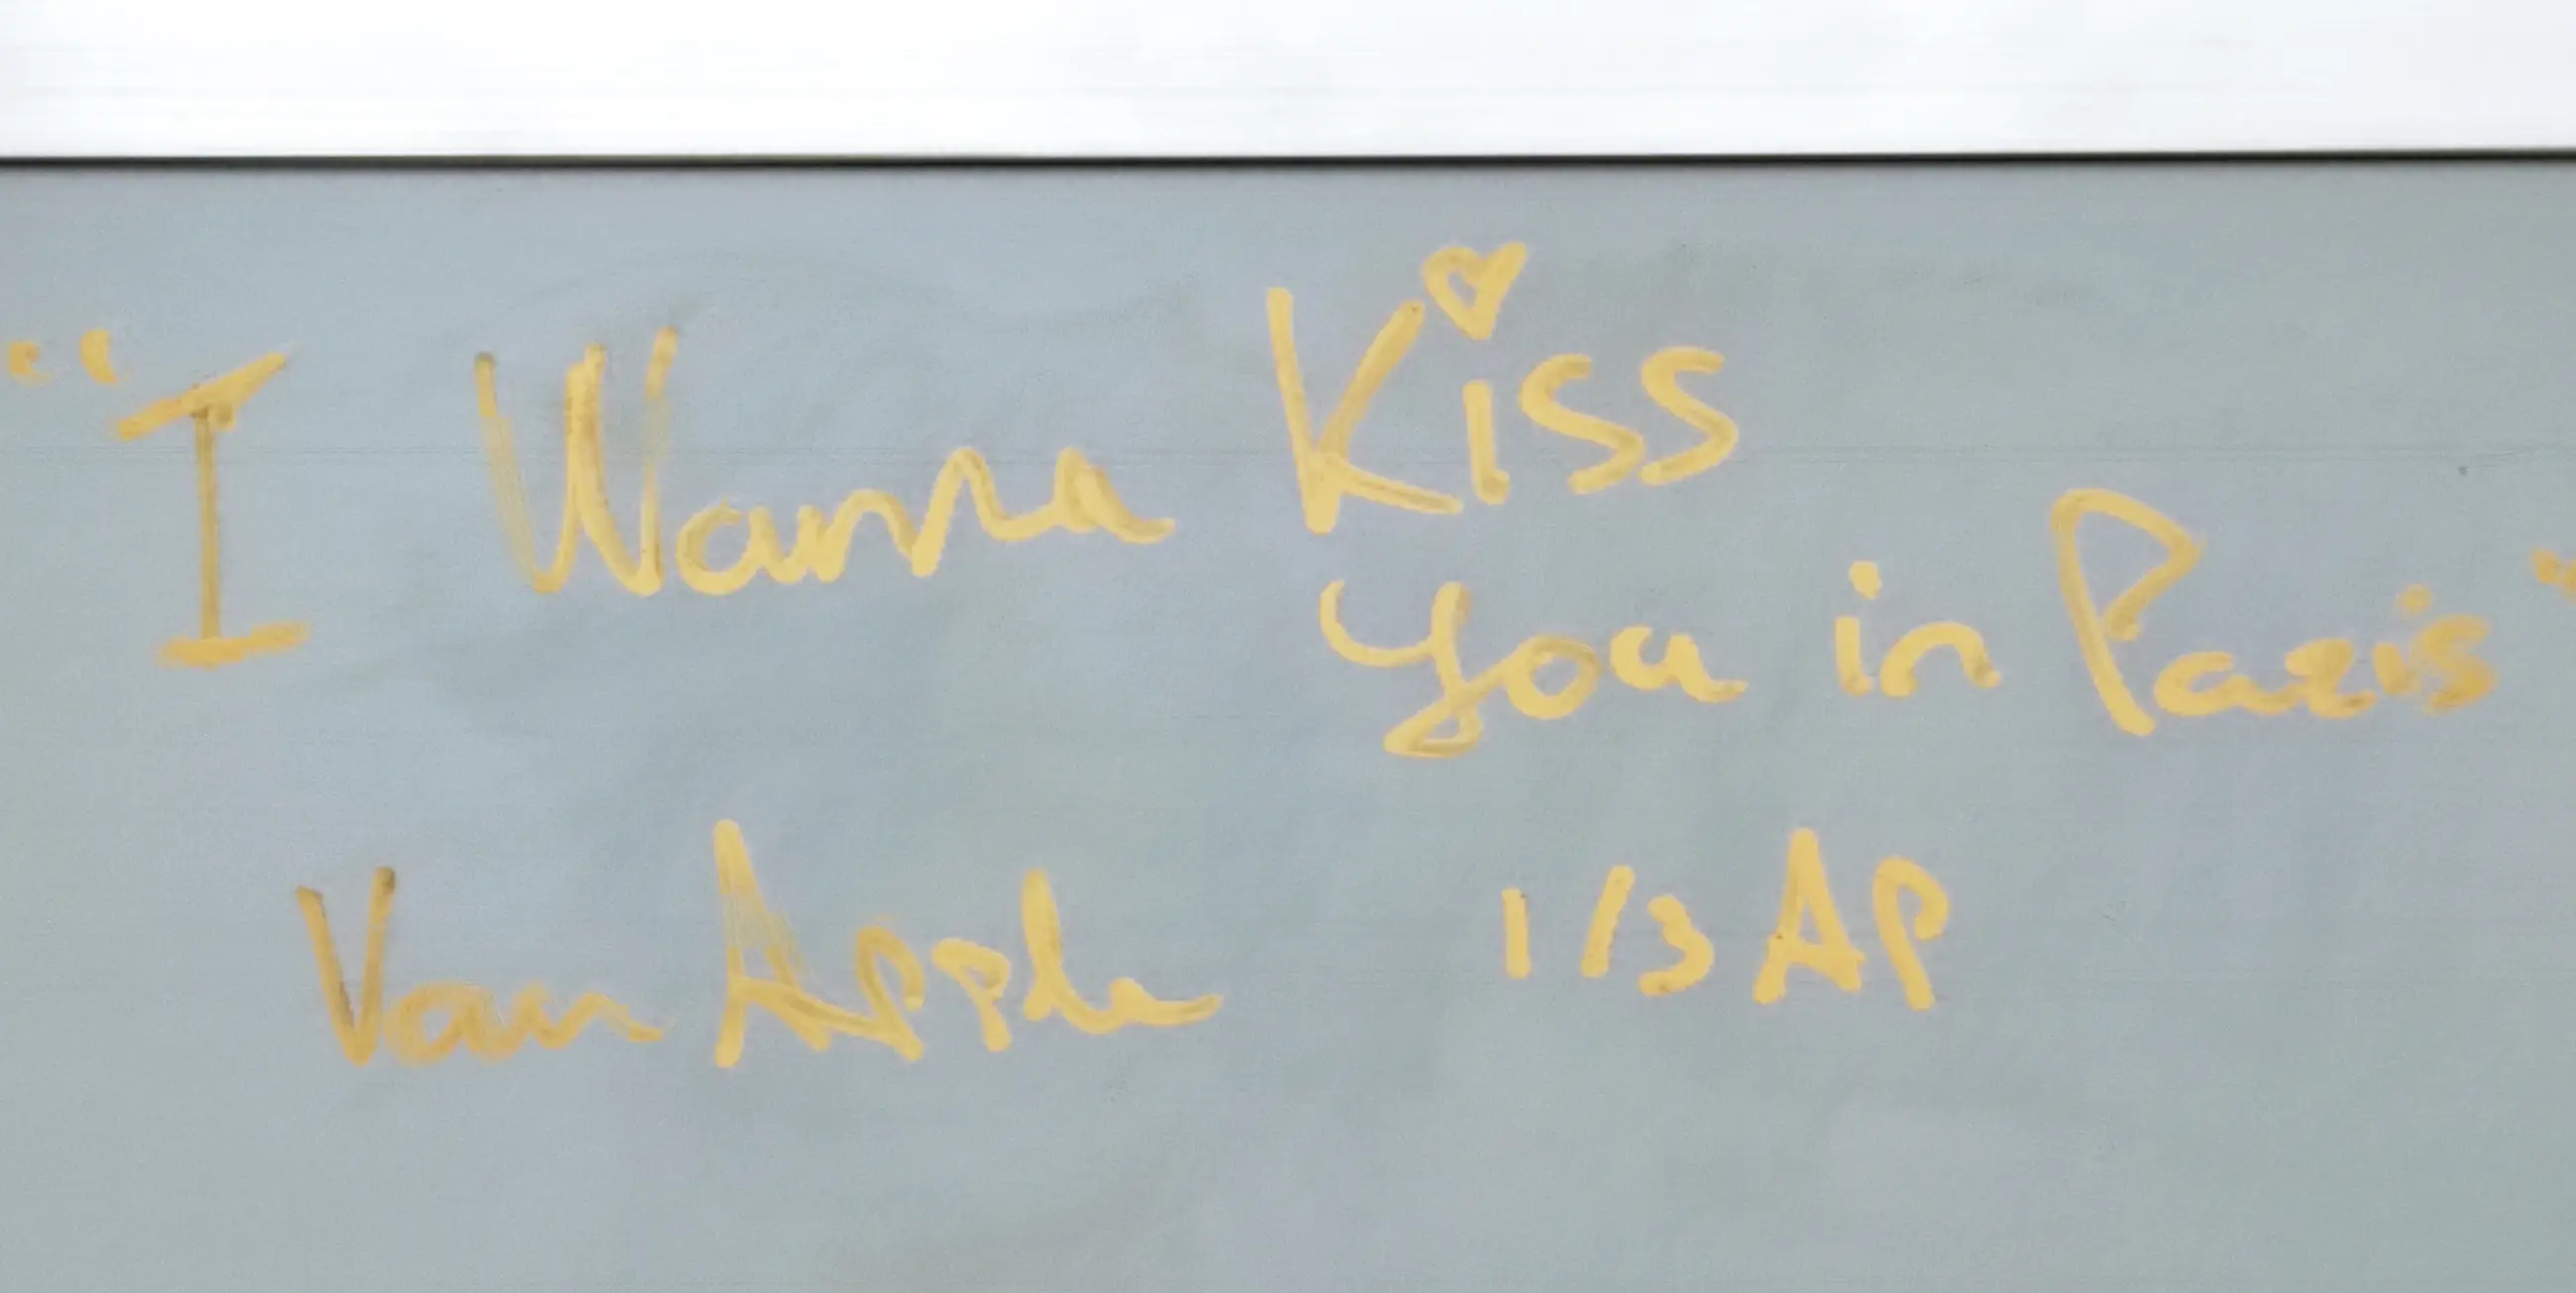 "I Wanna Kiss
You in Paris"
Van Apple 1/3 AP